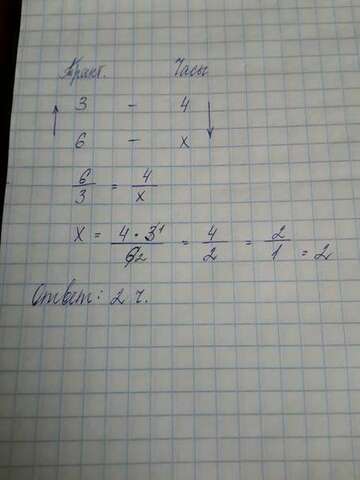 Тракт. Часы
3 - 4
6 - x
6/3 = 4/x
X = 4 · 3 1 / 6 2 = 4/2 = 2/1 = 2
Ответ: 2 ч.